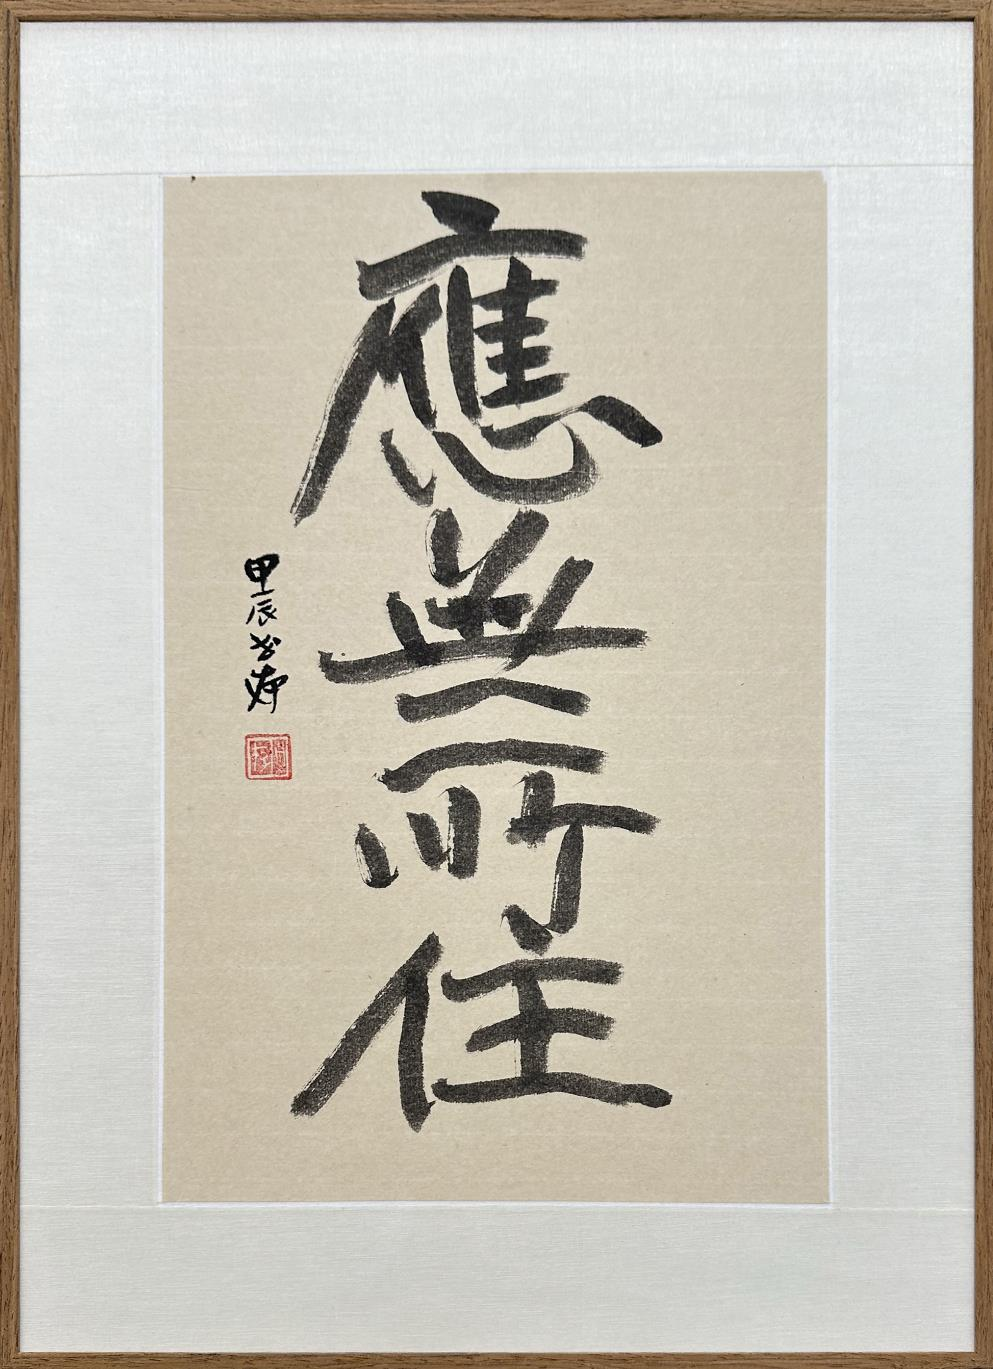 應無所住
甲辰